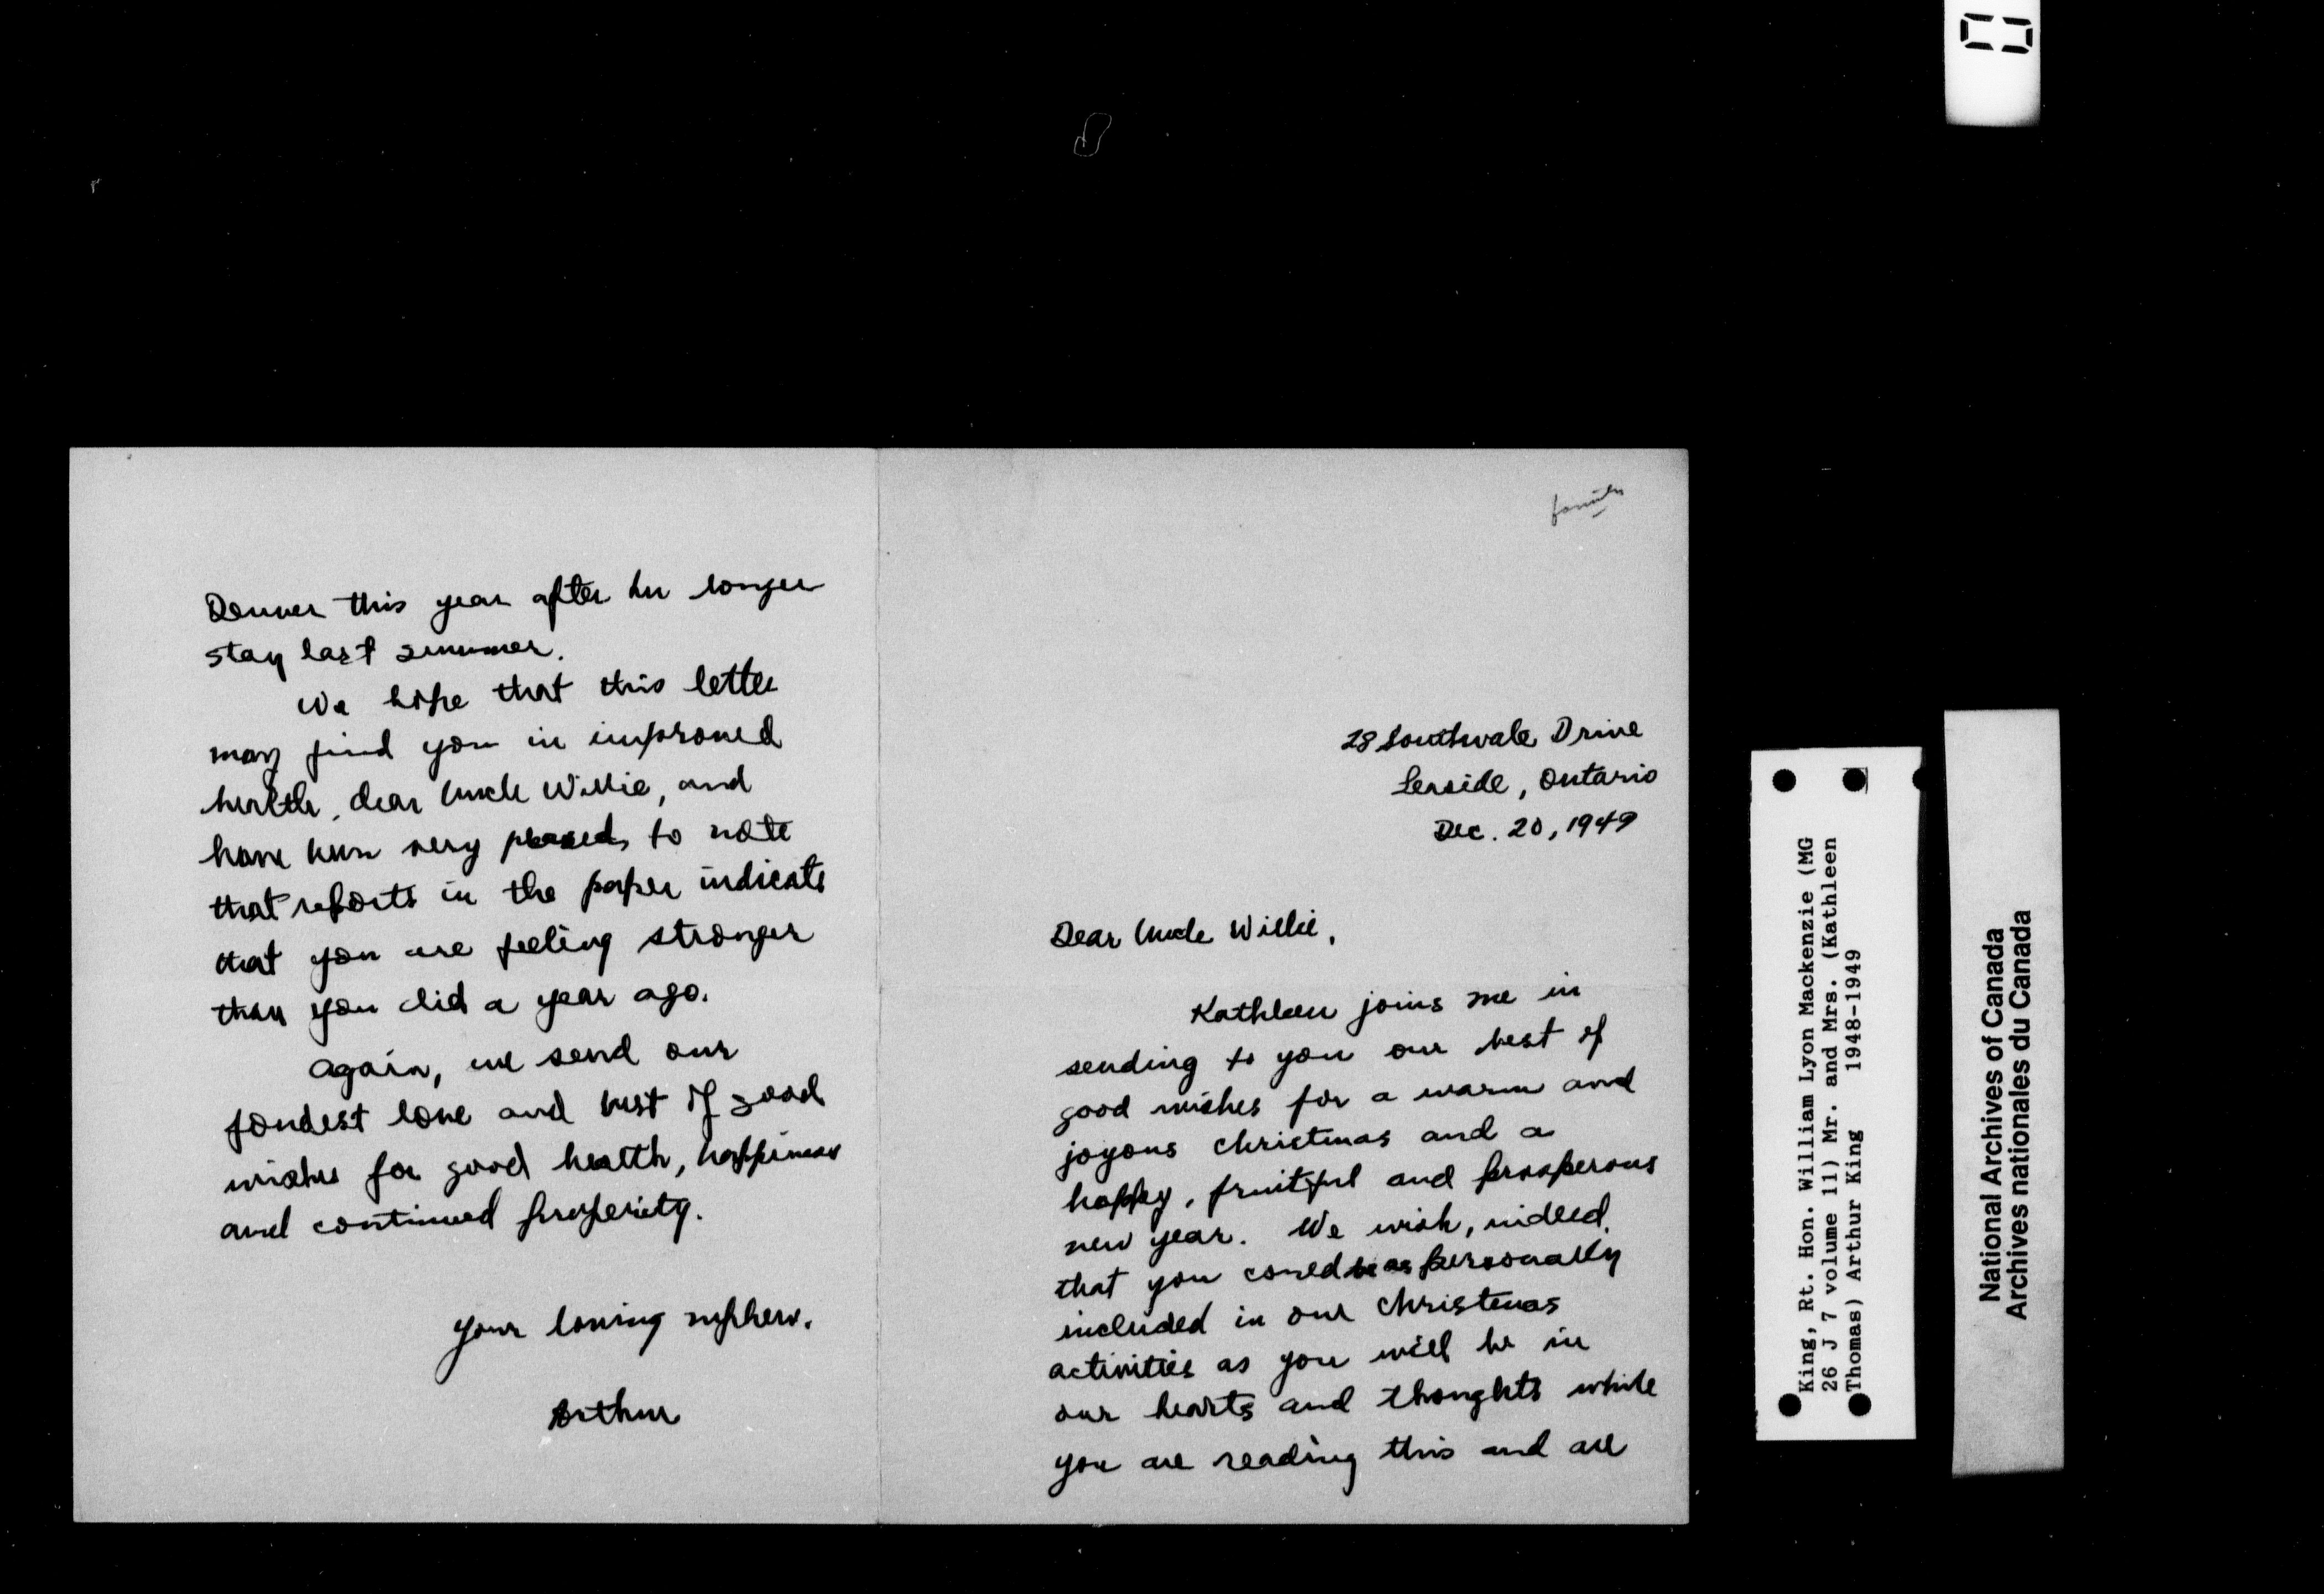 family
28 Southvale Drive
Leaside, Ontario
Dec. 20, 1949
Dear Uncle Willie,
Kathleen joins me in
sending to you our best of
good wishes for a warm and
joyous Christmas and a
happy, fruitful and prosperous
new year. We wish, indeed,
that you could be as personally
included in our Christmas
activities as you will be in
our hearts and thoughts while
you are reading this and are
Denver this year after her longer
stay last summer.
We hope that this letter
may find you in improved
health, dear Uncle Willie, and
have been very pleased to note
that reports in the paper indicate
that you are feeling stronger
than you did a year ago.
Again, we send our
fondest love and best of good
wishes for good health, happiness
and continued prosperity.
Your loving nephew,
Arthur
King, Rt. Hon. William Lyon Mackenzie (MG
26 J 7 volume 11) Mr. and Mrs. (Kathleen
Thomas) Arthur King 1948-1949
National Archives of Canada
Archives nationales du Canada